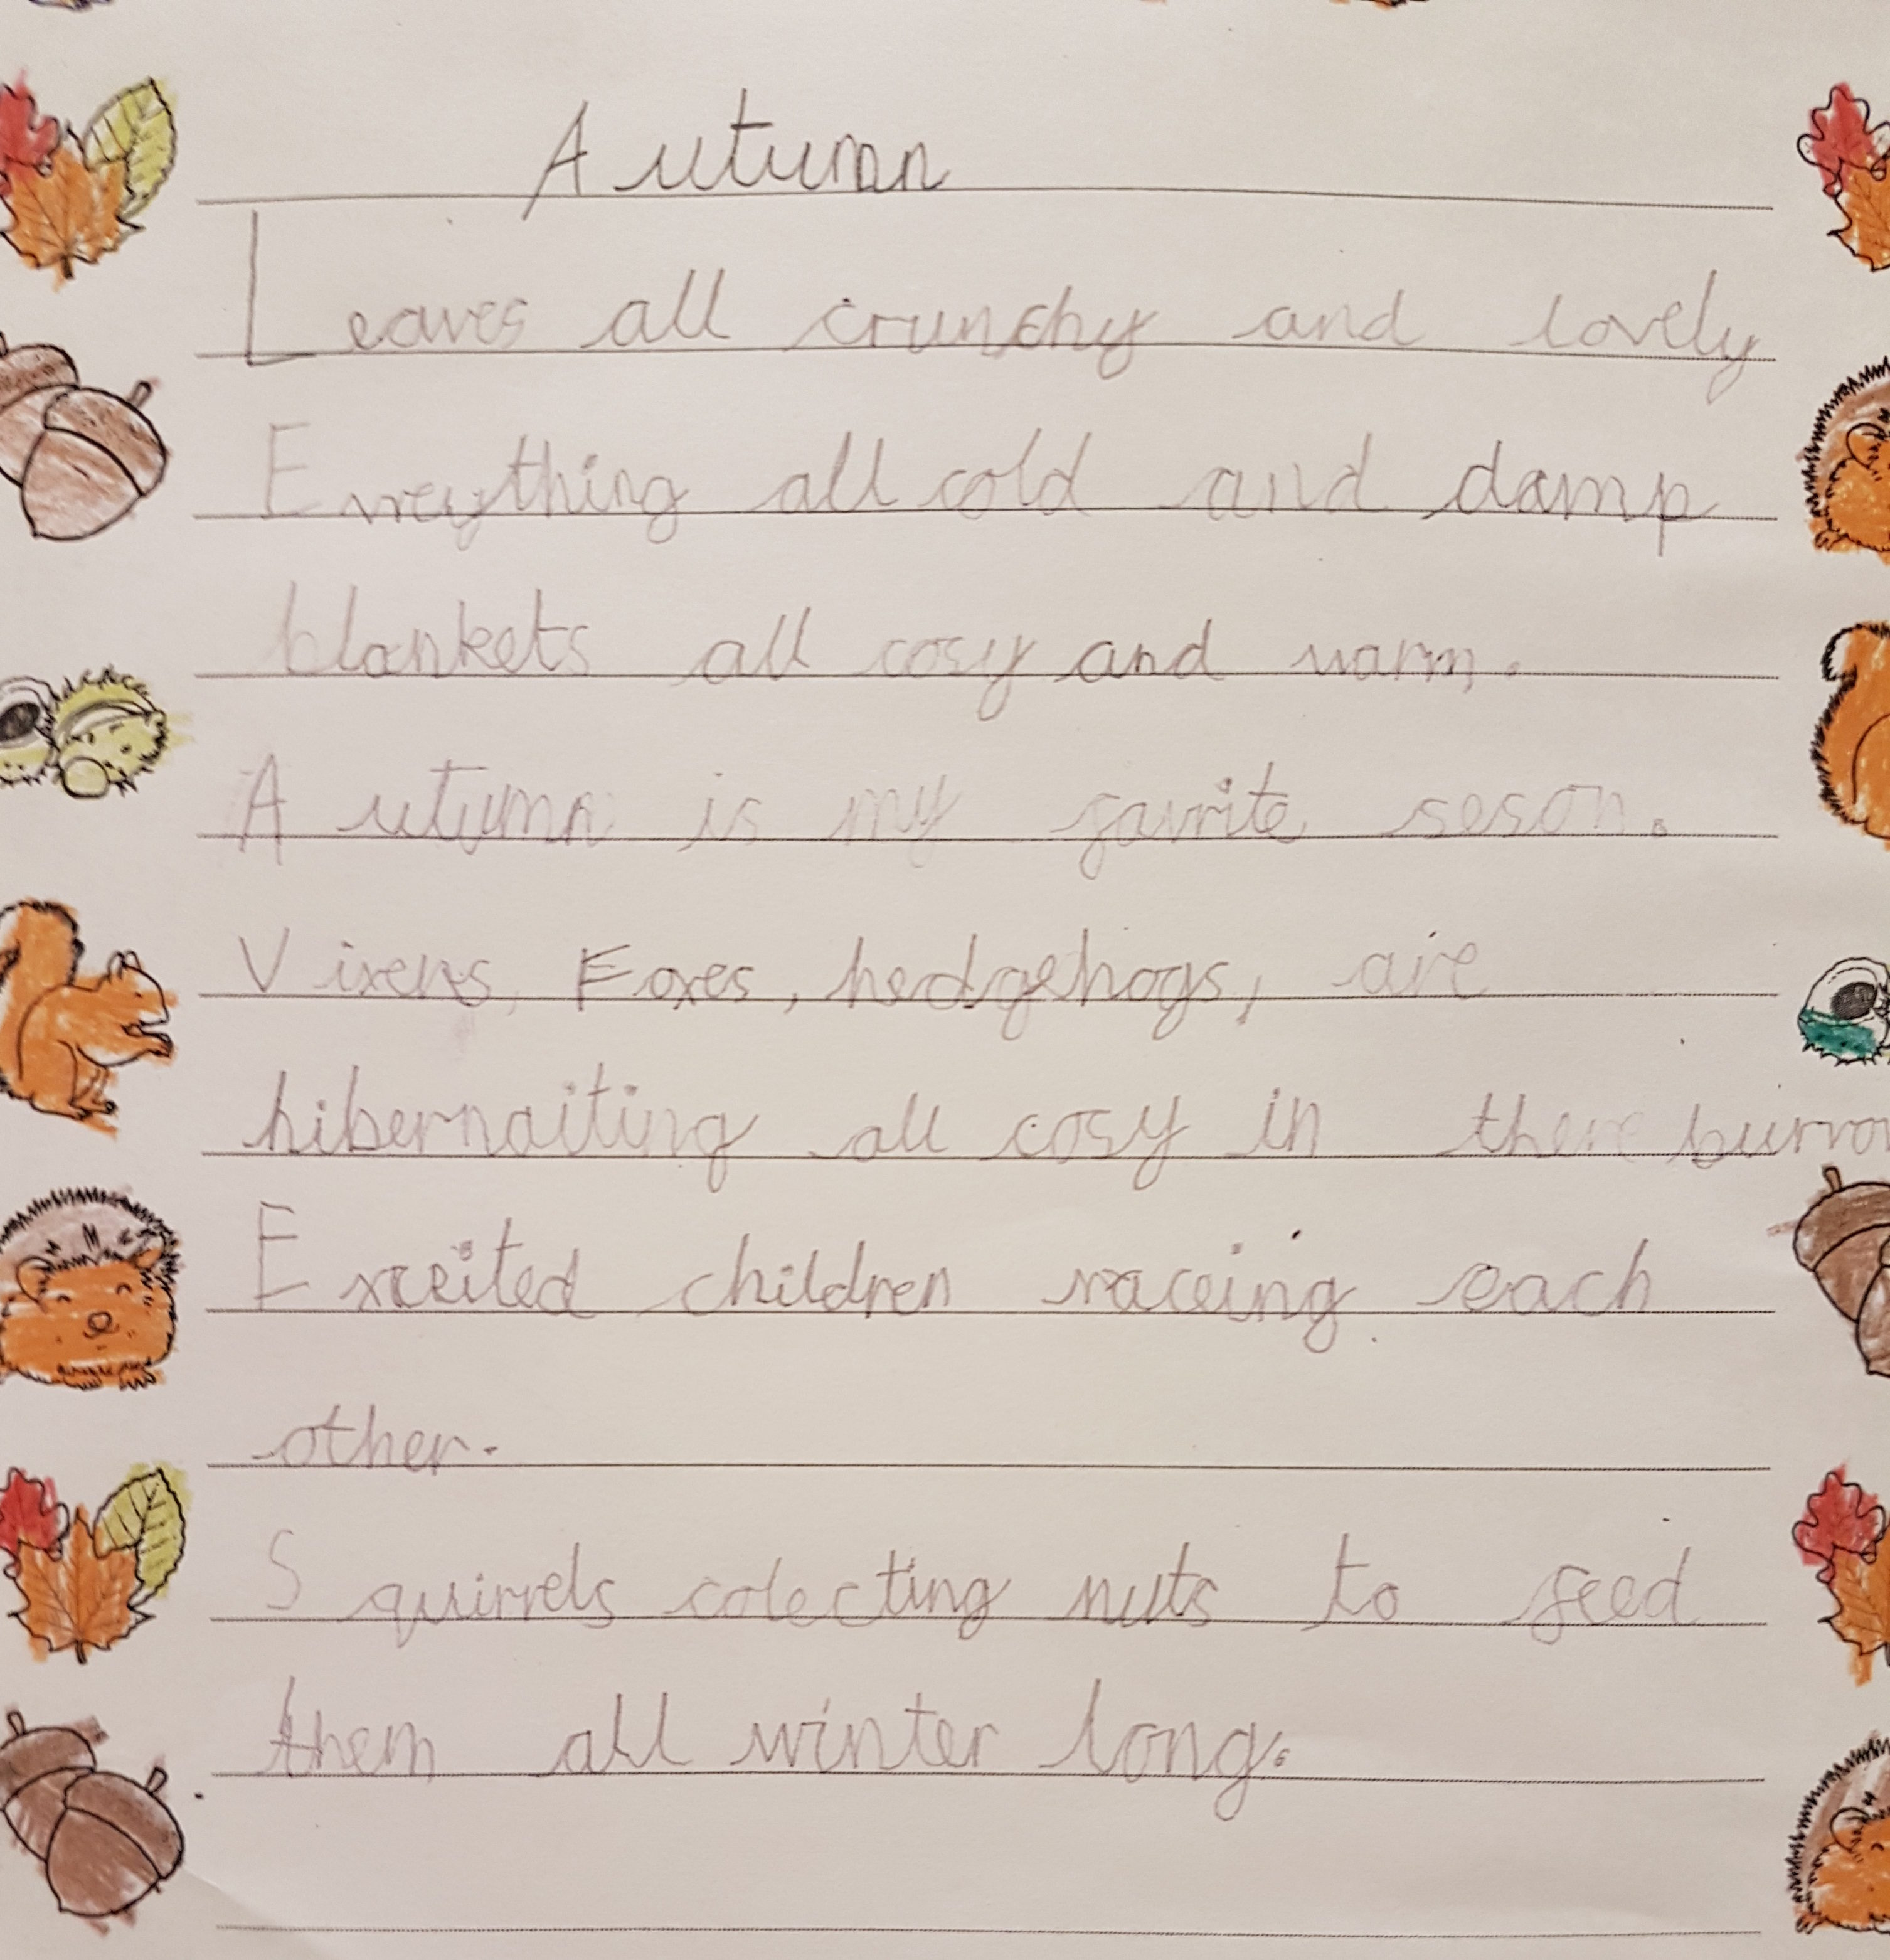 Autumn
Leaves all crunchy and lovely
Evreything all cold and damp
blankets all cosy and warm.
Autumn is my favrite seson.
Vixens, Foxes, hedgehogs, are
hibernaiting all cosy in there burrow
Exceited children raceing each
other.
Squirrels colecting nuts to feed
them all winter long.